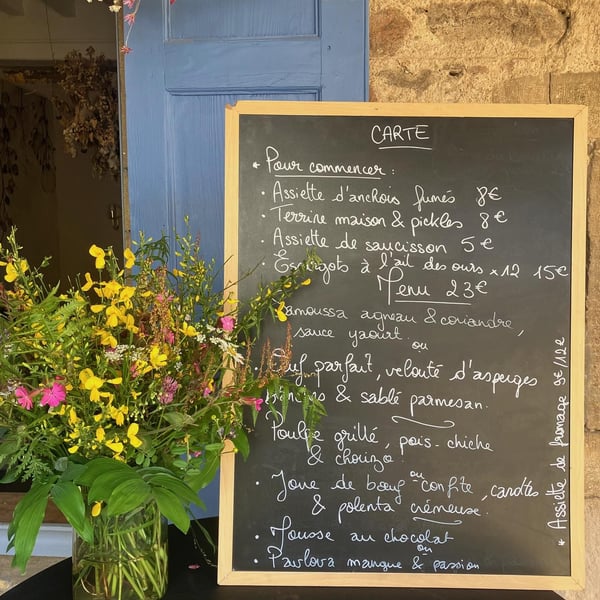 CARTE
• Pour commencer :
• Assiette d'anchois fumés 8€
• Terrine maison & pickles 8€
• Assiette de saucisson 5€
• Escargots à l'ail des ours x12 15€
Menu 23€
Samoussa agneau & coriandre,
sauce yaourt.
ou
• Œuf parfait, velouté d'asperges
& sablé parmesan.
Poulpe grillé, pois-chiche
& chorizo.
ou
• Joue de bœuf confite, carottes
& polenta crémeuse.
• Mousse au chocolat
ou
• Pavlova mangue & passion
* Assiette de fromage 9€/12€